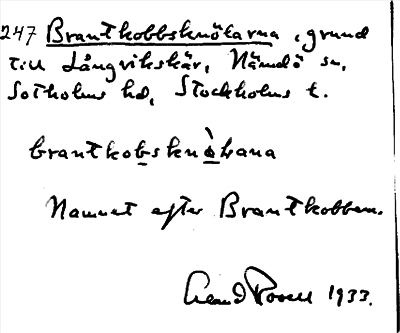 247 Brantkobbsknötarna, grund
till Långvikskär, Nämdö sn,
Sotholms hd, Stockholms l.
brantkobsknòkana
Namnet efter Brantkobben.
1933.